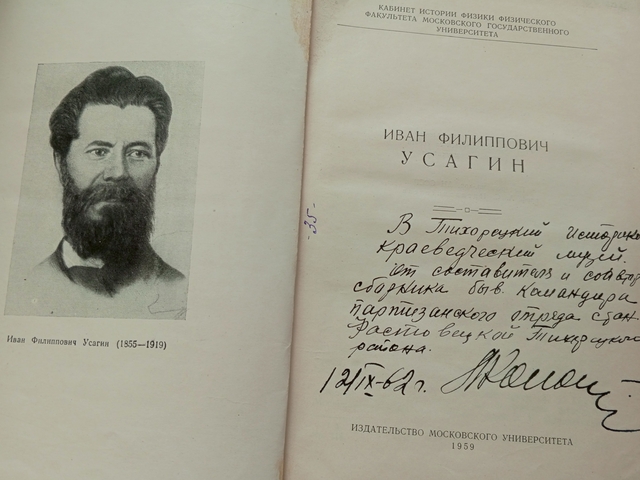 Иван Филиппович Усагин (1855—1919)
КАБИНЕТ ИСТОРИИ ФИЗИКИ ФИЗИЧЕСКОГО
ФАКУЛЬТЕТА МОСКОВСКОГО ГОСУДАРСТВЕННОГО
УНИВЕРСИТЕТА
ИВАН ФИЛИППОВИЧ
УСАГИН
-35-
В Тихорецкий историко
краеведческий музей.
от составителя и соавтора
сборника быв. командира
партизанского отряда стан.
Растовецкой Тихорецкого
района.
12/IX-62 г.
ИЗДАТЕЛЬСТВО МОСКОВСКОГО УНИВЕРСИТЕТА
1959